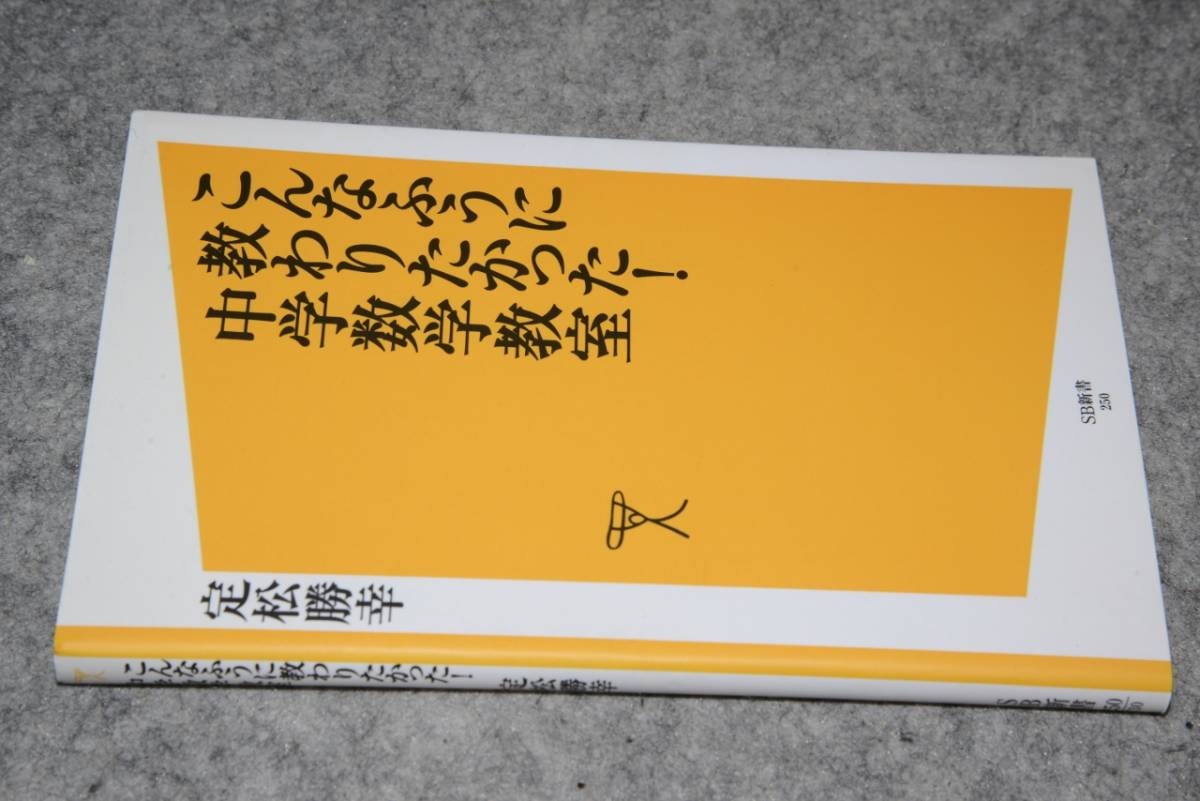 こんなふうに
教わりたかった!
中学数学教室
定松勝幸
SB新書
250
こんなふうに教わりたかった!
定松勝幸
SB新書